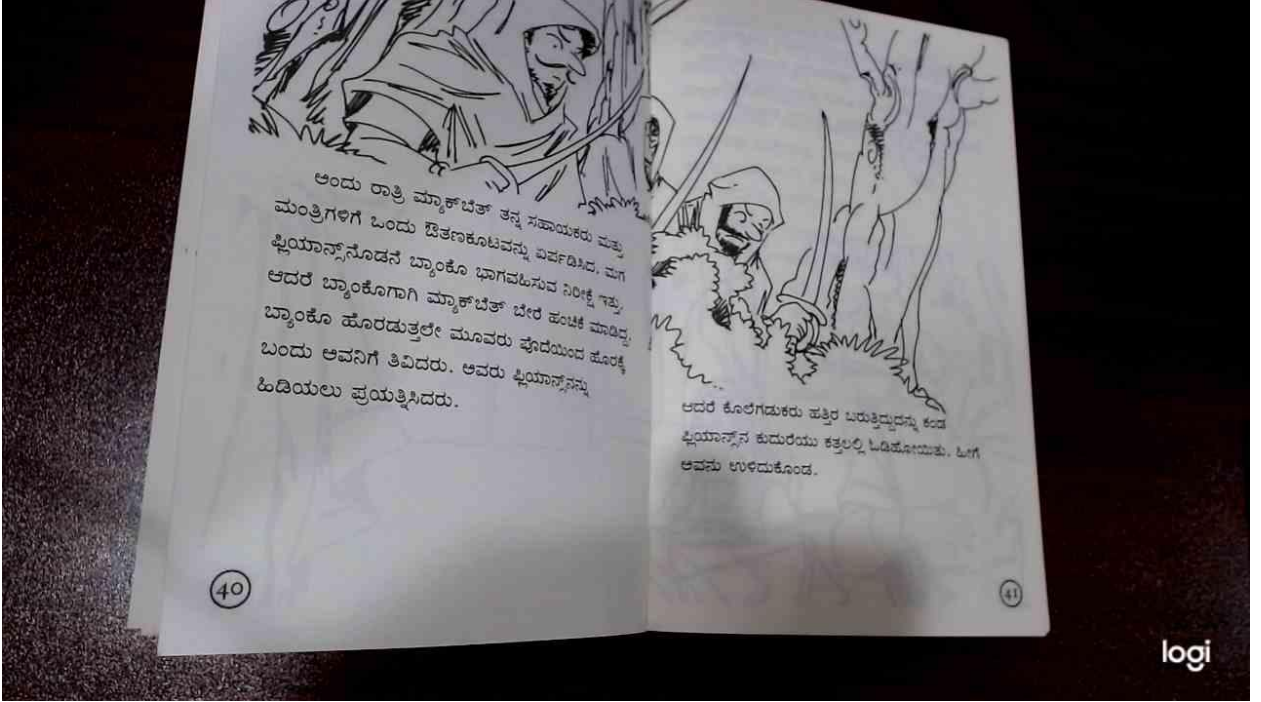 ಅಂದು ರಾತ್ರಿ ಮ್ಯಾಕ್‌ಬೆತ್ ತನ್ನ ಸಹಾಯಕರು ಮತ್ತು
ಮಂತ್ರಿಗಳಿಗೆ ಒಂದು ಔತಣಕೂಟವನ್ನು ಏರ್ಪಡಿಸಿದ. ಮಗ
ಫ್ಲಿಯಾನ್ಸ್‌ನೊಡನೆ ಬ್ಯಾಂಕೊ ಭಾಗವಹಿಸುವ ನಿರೀಕ್ಷೆ ಇತ್ತು.
ಆದರೆ ಬ್ಯಾಂಕೊಗಾಗಿ ಮ್ಯಾಕ್‌ಬೆತ್ ಬೇರೆ ಹಂಚಿಕೆ ಮಾಡಿದ್ದ.
ಬ್ಯಾಂಕೊ ಹೊರಡುತ್ತಲೇ ಮೂವರು ಪೊದೆಯಿಂದ ಹೊರಕ್ಕೆ
ಬಂದು ಅವನಿಗೆ ತಿವಿದರು. ಅವರು ಫ್ಲಿಯಾನ್ಸ್‌ನನ್ನು
ಹಿಡಿಯಲು ಪ್ರಯತ್ನಿಸಿದರು.
40
ಆದರೆ ಕೊಲೆಗಡುಕರು ಹತ್ತಿರ ಬರುತ್ತಿದ್ದುದನ್ನು ಕಂಡ
ಫ್ಲಿಯಾನ್ಸ್‌ನ ಕುದುರೆಯು ಕತ್ತಲಲ್ಲಿ ಓಡಿಹೋಯಿತು. ಹೀಗೆ
ಅವನು ಉಳಿದುಕೊಂಡ.
41
logi